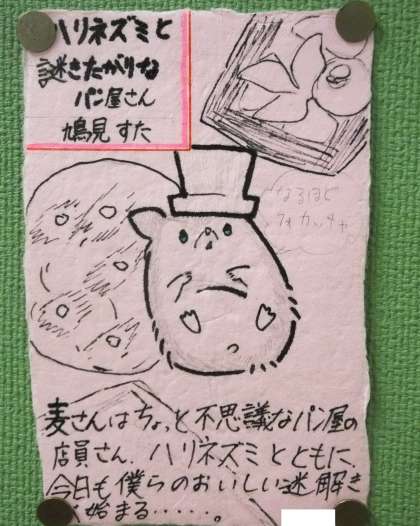 ハリネズミと
謎きたがりな
パン屋さん
鳩見 すた
なるほど
フォカッチャ。
麦さんはちょっと不思議なパン屋の
店員さん。ハリネズミとともに、
今日も僕らのおいしい迷解き
始まる・・・・・。